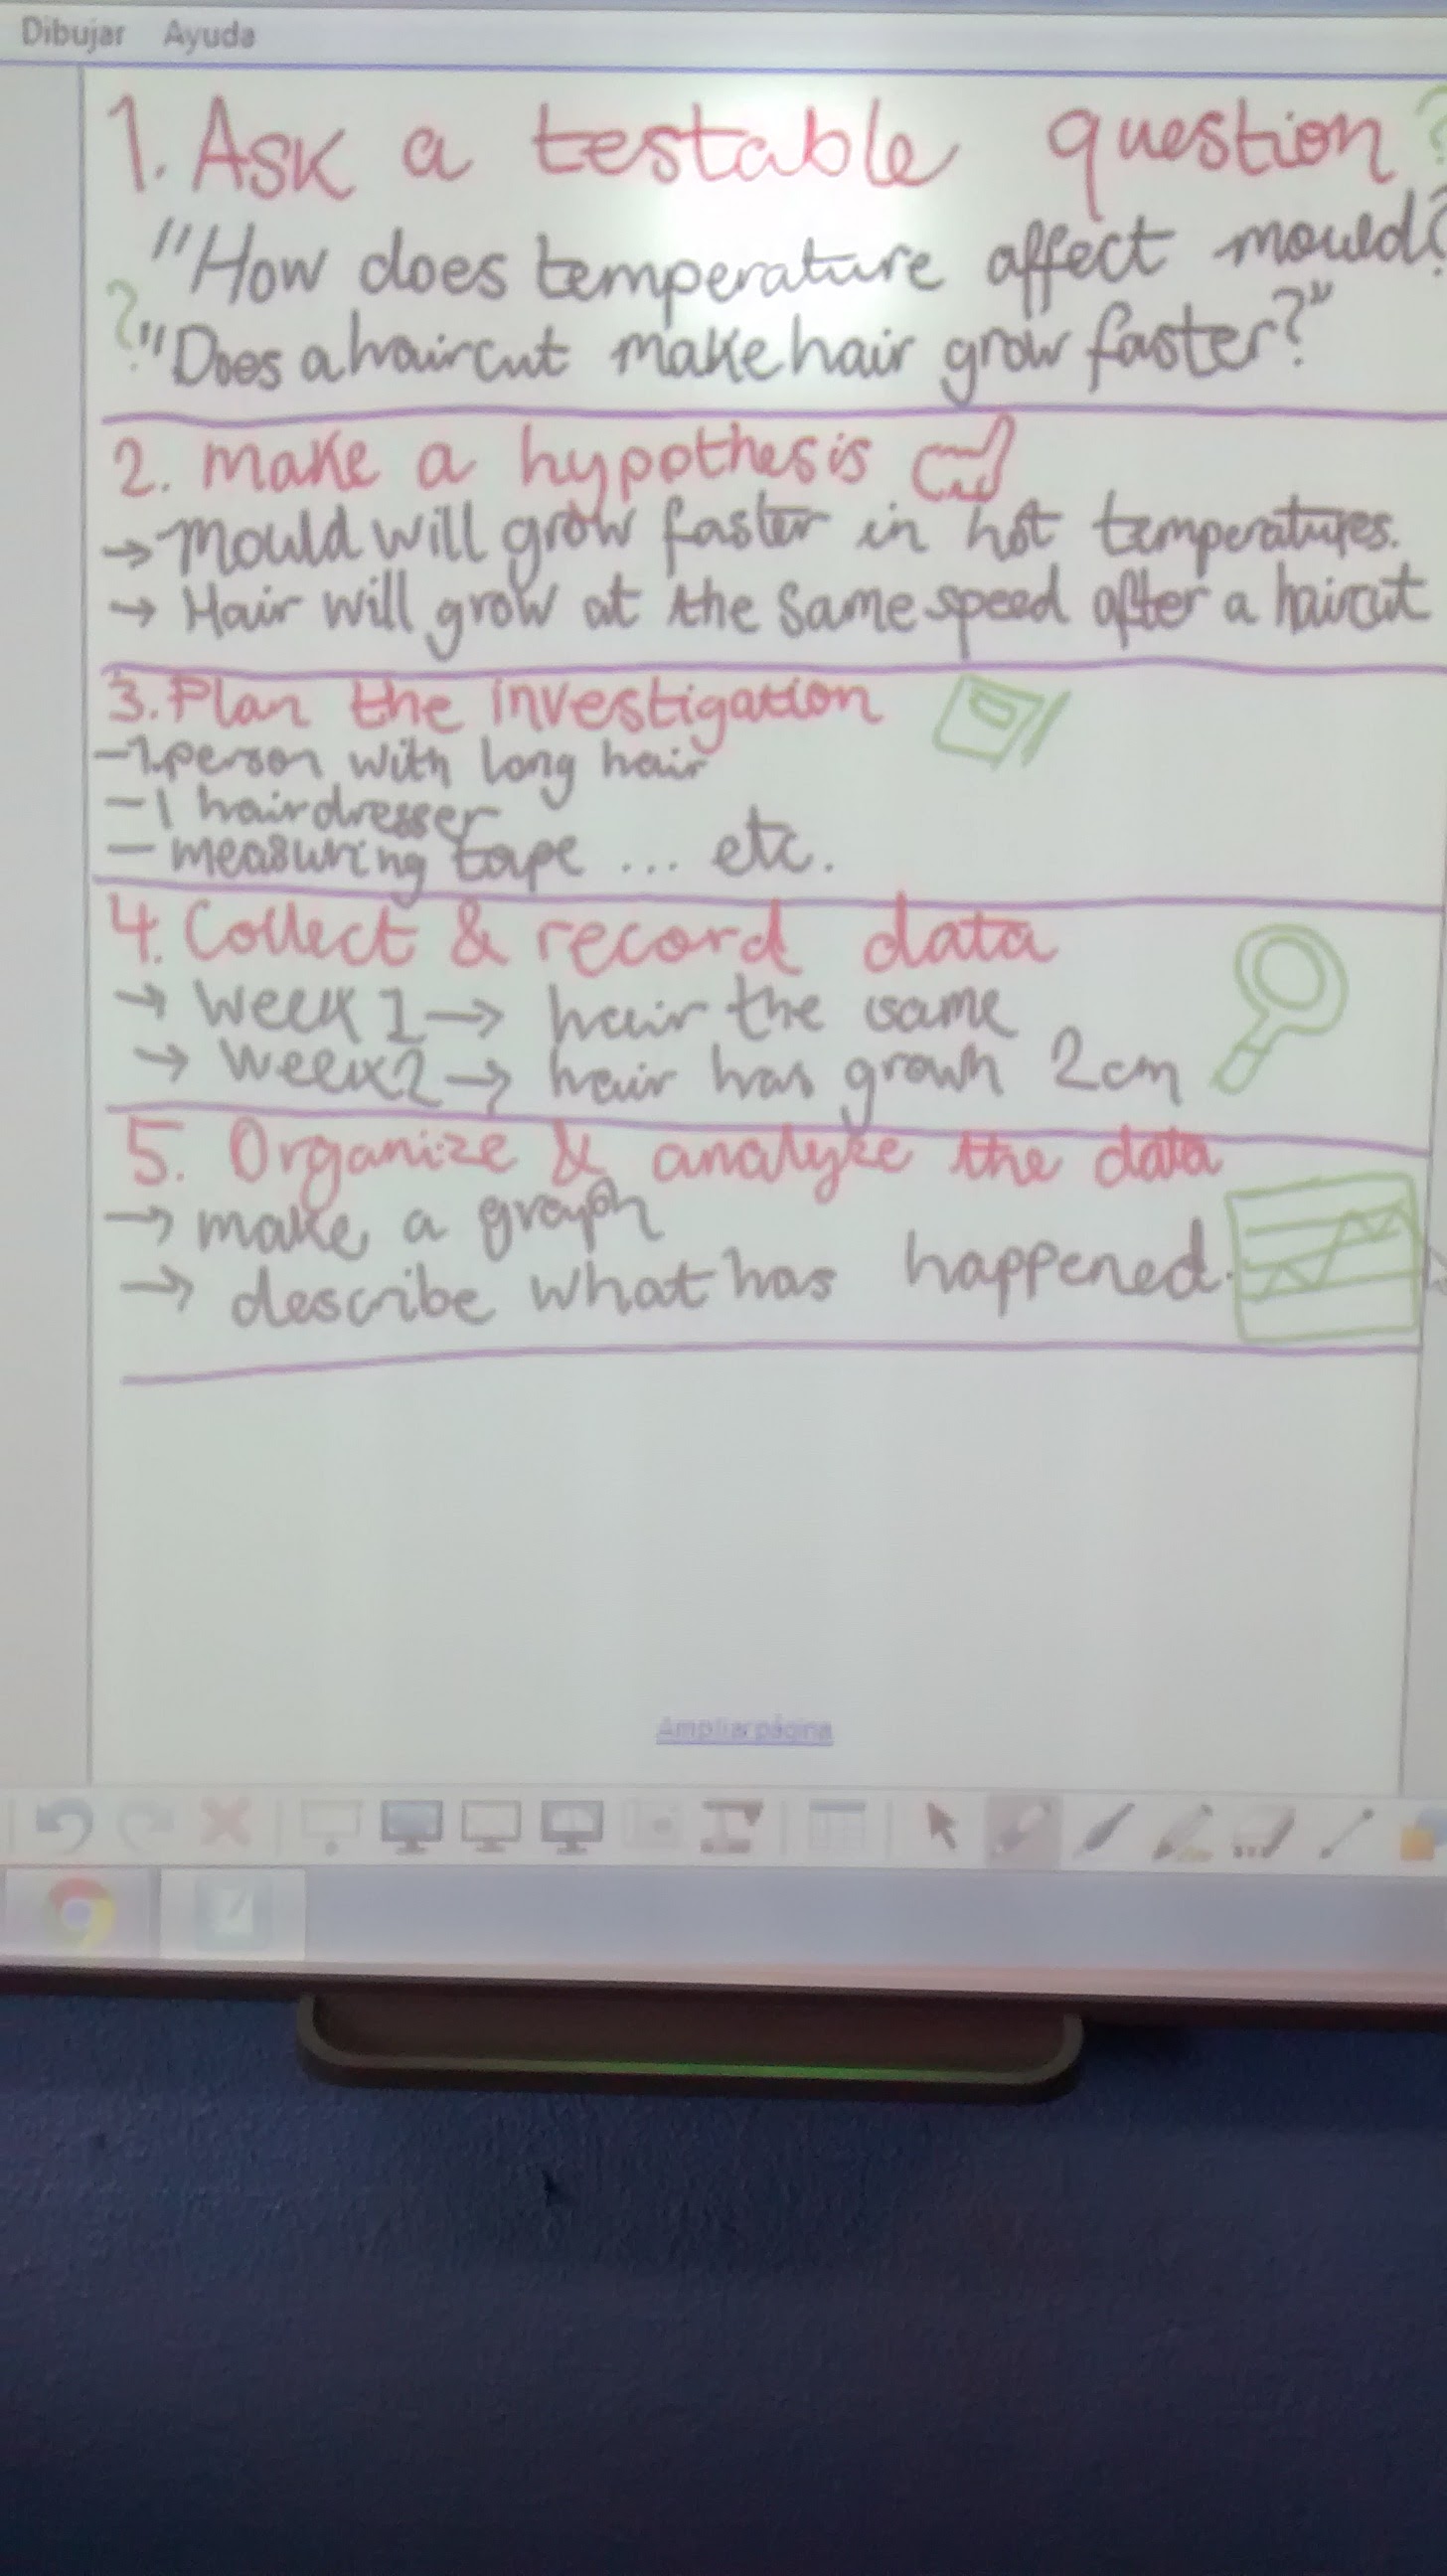 Dibujar Ayuda
1. Ask a testable question ?
"How does temperature affect mould?
? "Does a haircut make hair grow faster?"
2. Make a hypothesis
→ Mould will grow faster in hot temperatures.
→ Hair will grow at the same speed after a haircut
3. Plan the investigation
- 1 person with long hair
- 1 hairdresser
- measuring tape ... etc.
4. Collect & record data
→ Week 1 → hair the same
→ Week 2 → hair has grown 2cm
5. Organize & analyze the data
→ make a graph
→ describe what has happened.
Ampliar página